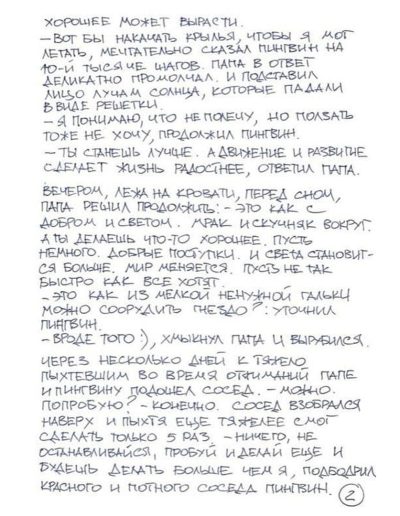 ХОРОШЕЕ МОЖЕТ ВЫРАСТИ.
– ВОТ БЫ НАКАЧАТЬ КРЫЛЬЯ, ЧТОБЫ Я МОГ
ЛЕТАТЬ, МЕЧТАТЕЛЬНО СКАЗАЛ ПИНГВИН НА
10-Й ТЫСЯЧЕ ШАГОВ. ПАПА В ОТВЕТ
ДЕЛИКАТНО ПРОМОЛЧАЛ. И ПОДСТАВИЛ
ЛИЦО ЛУЧАМ СОЛНЦА, КОТОРЫЕ ПАДАЛИ
В ВИДЕ РЕШЕТКИ.
– Я ПОНИМАЮ, ЧТО НЕ ПОЛЕЧУ, НО ПОЛЗАТЬ
ТОЖЕ НЕ ХОЧУ, ПРОДОЛЖИЛ ПИНГВИН.
– ТЫ СТАНЕШЬ ЛУЧШЕ. А ДВИЖЕНИЕ И РАЗВИТИЕ
СДЕЛАЕТ ЖИЗНЬ РАДОСТНЕЕ, ОТВЕТИЛ ПАПА.
ВЕЧЕРОМ, ЛЕЖА НА КРОВАТИ, ПЕРЕД СНОМ,
ПАПА РЕШИЛ ПРОДОЛЖИТЬ: – ЭТО КАК С
ДОБРОМ И СВЕТОМ. МРАК И СКУЧНЯК ВОКРУГ.
А ТЫ ДЕЛАЕШЬ ЧТО-ТО ХОРОШЕЕ. ПУСТЬ
НЕМНОГО. ДОБРЫЕ ПОСТУПКИ. И СВЕТА СТАНОВИТ-
СЯ БОЛЬШЕ. МИР МЕНЯЕТСЯ. ПУСТЬ НЕ ТАК
БЫСТРО КАК ВСЕ ХОТЯТ.
– ЭТО КАК ИЗ МЕЛКОЙ НЕНУЖНОЙ ГАЛЬКИ
МОЖНО СООРУДИТЬ ГНЕЗДО?: УТОЧНИЛ
ПИНГВИН.
– ВРОДЕ ТОГО :), ХМЫКНУЛ ПАПА И ВЫРУБИЛСЯ.
ЧЕРЕЗ НЕСКОЛЬКО ДНЕЙ К ТЯЖЕЛО
ПЫХТЕВШИМ ВО ВРЕМЯ ОТЖИМАНИЙ ПАПЕ
И ПИНГВИНУ ПОДОШЕЛ СОСЕД. – МОЖНО.
ПОПРОБУЮ? – КОНЕЧНО. СОСЕД ВЗОБРАЛСЯ
НАВЕРХ И ПЫХТЯ ЕЩЕ ТЯЖЕЛЕЕ СМОГ
СДЕЛАТЬ ТОЛЬКО 5 РАЗ. – НИЧЕГО, НЕ
ОСТАНАВЛИВАЙСЯ, ПРОБУЙ И ДЕЛАЙ ЕЩЕ И
БУДЕШЬ ДЕЛАТЬ БОЛЬШЕ ЧЕМ Я, ПОДБОДРИЛ
КРАСНОГО И ПОТНОГО СОСЕДА ПИНГВИН. 2